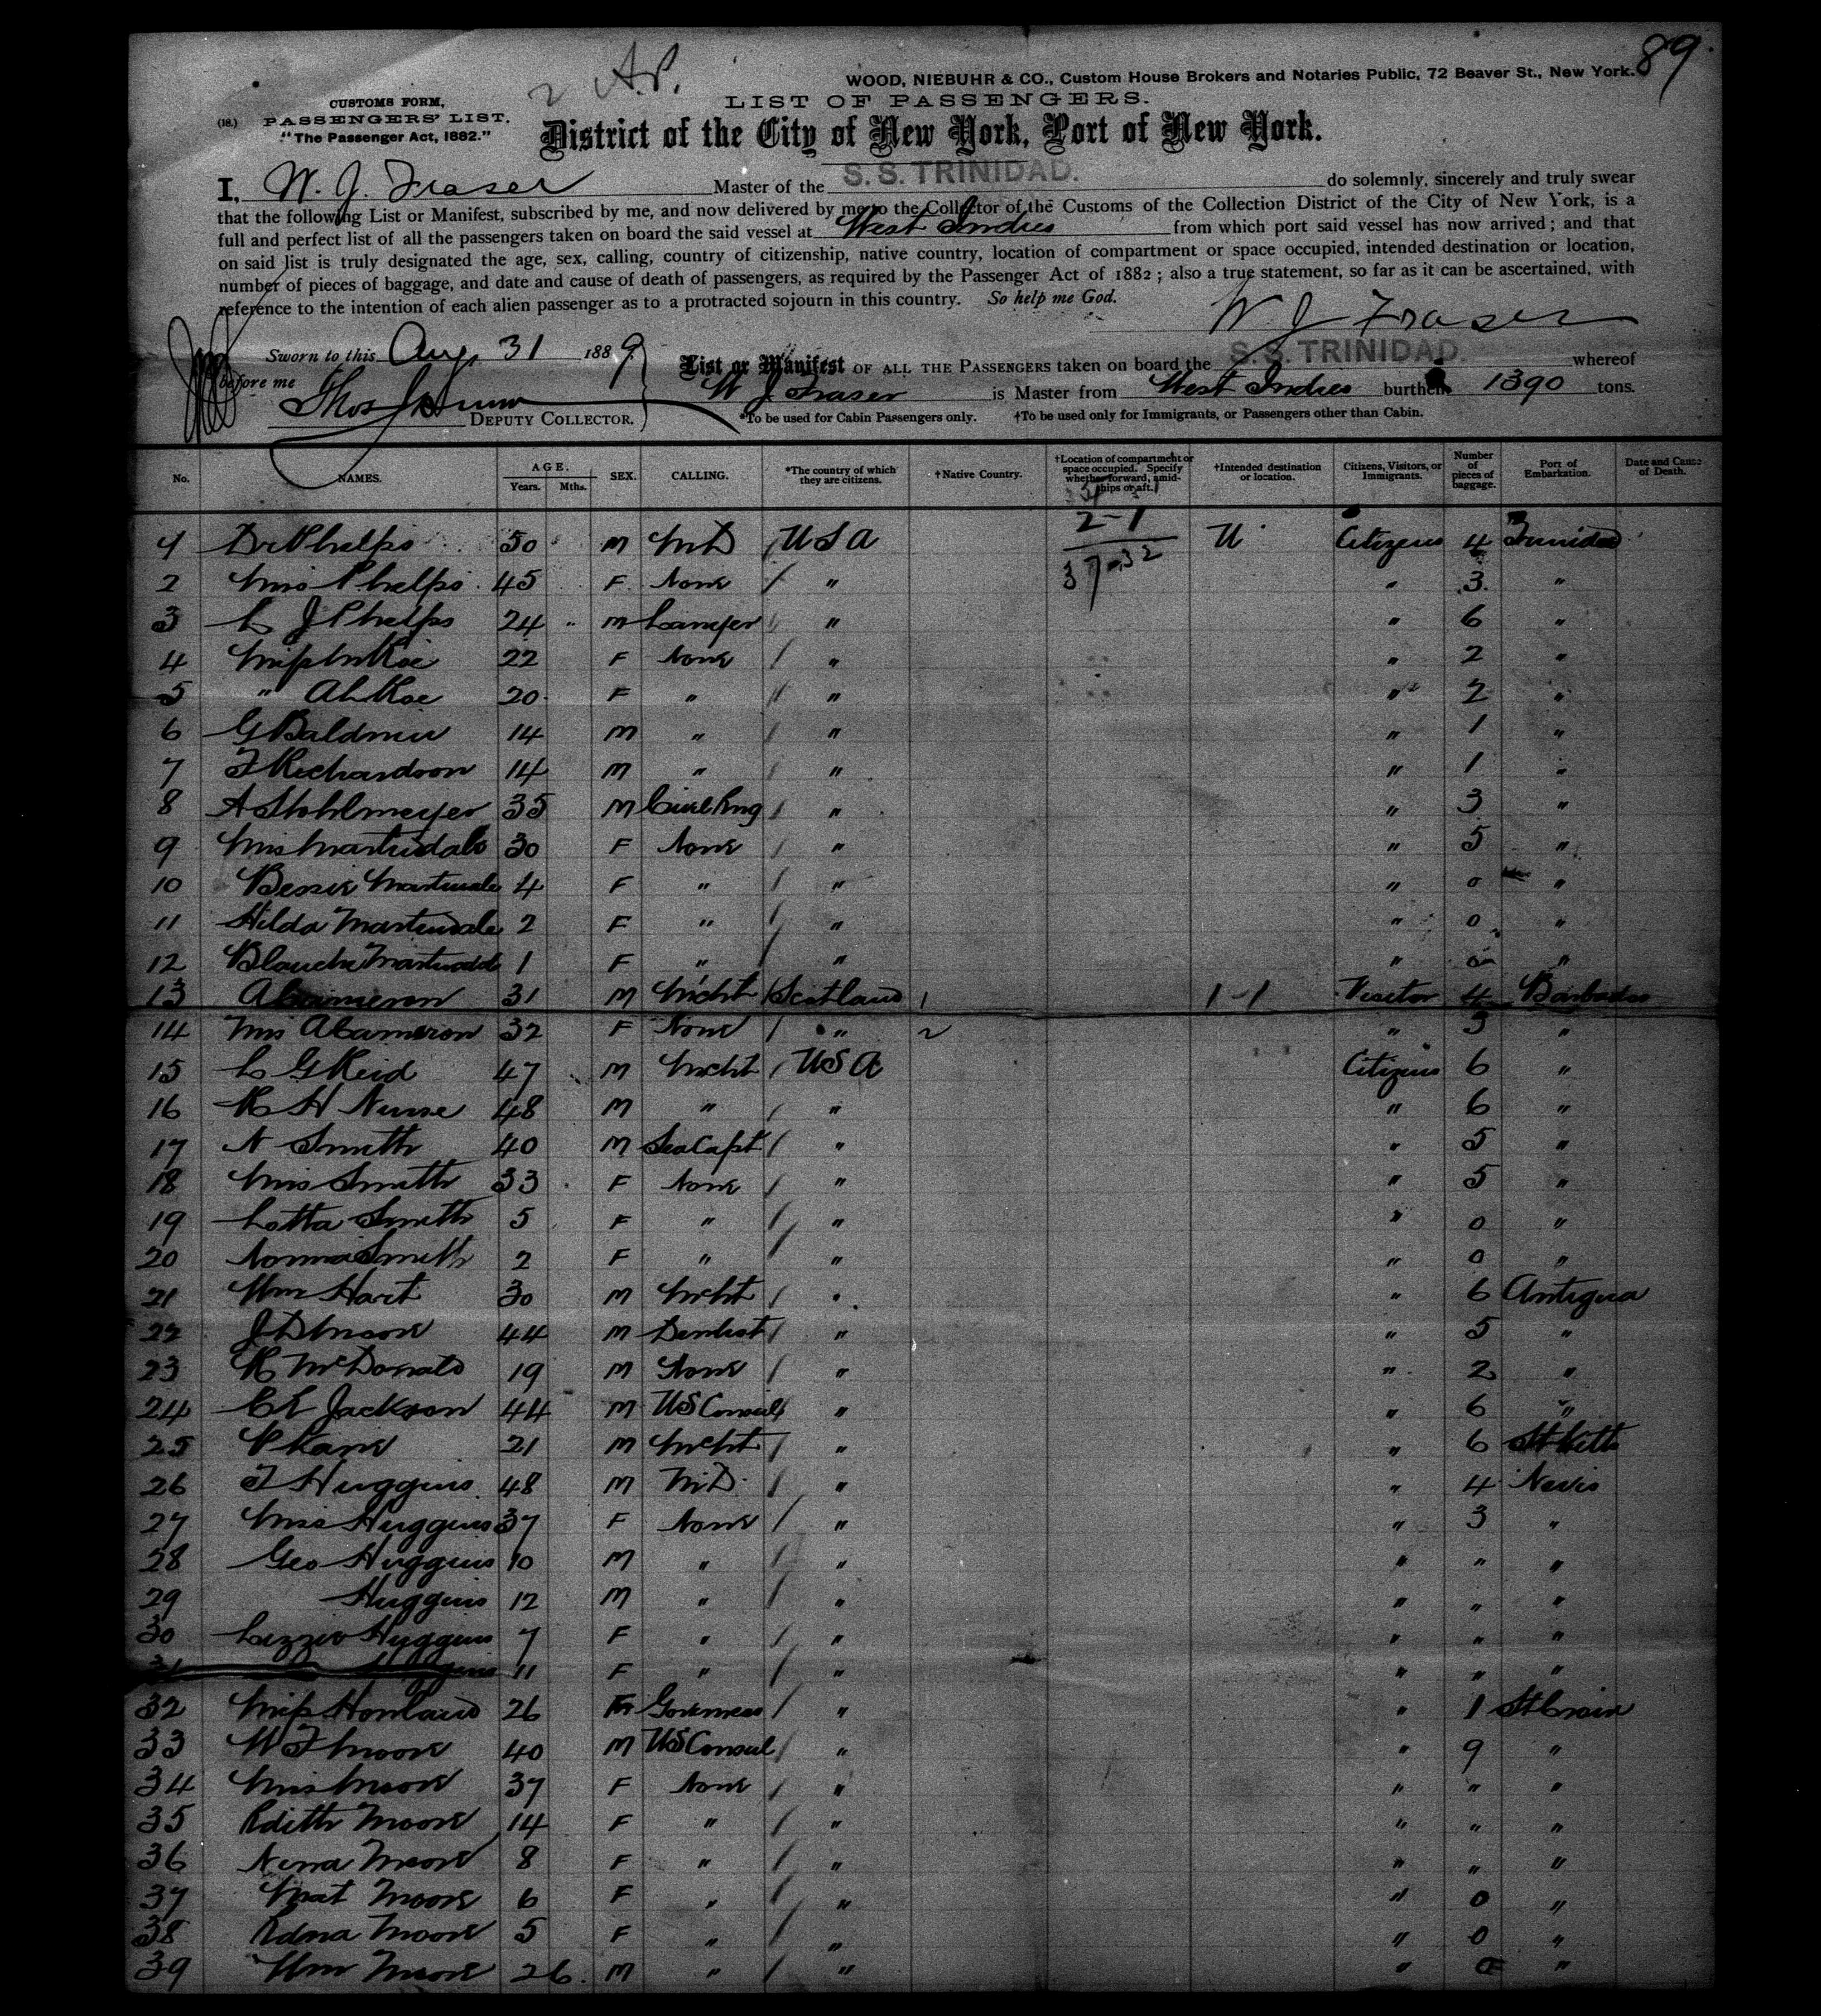 89
2 A.P.
WOOD, NIEBUHR & CO., Custom House Brokers and Notaries Public, 72 Beaver St., New York.
LIST OF PASSENGERS.
(18.) CUSTOMS FORM,
PASSENGERS' LIST.
"The Passenger Act, 1882."
District of the City of New York, Port of New York.
I, W. J. Fraser Master of the S. S. TRINIDAD. do solemnly, sincerely and truly swear
that the following List or Manifest, subscribed by me, and now delivered by me to the Collector of the Customs of the Collection District of the City of New York, is a
full and perfect list of all the passengers taken on board the said vessel at West Indies from which port said vessel has now arrived; and that
on said list is truly designated the age, sex, calling, country of citizenship, native country, location of compartment or space occupied, intended destination or location,
number of pieces of baggage, and date and cause of death of passengers, as required by the Passenger Act of 1882; also a true statement, so far as it can be ascertained, with
reference to the intention of each alien passenger as to a protracted sojourn in this country. So help me God.
W J Fraser
Sworn to this Aug 31 1889
before me Thos
DEPUTY COLLECTOR.
List or Manifest OF ALL THE PASSENGERS taken on board the S. S. TRINIDAD. whereof
W J Fraser is Master from West Indies burthen 1390 tons.
*To be used for Cabin Passengers only. †To be used only for Immigrants, or Passengers other than Cabin.
No. NAMES. AGE. Years. Mths. SEX. CALLING. *The country of which they are citizens. †Native Country. †Location of compartment or space occupied. Specify whether forward, amidships or aft. †Intended destination or location. Citizens, Visitors, or Immigrants. Number of pieces of baggage. Port of Embarkation. Date and Cause of Death.
1 Dr Phelps 50 M M D USA 2-1 U Citizens 4 Trinidad
2 Mrs Phelps 45 F None " 37-32 " 3 "
3 L J Phelps 24 " M Lawyer " " 6 "
4 Miss M Koe 22 F None " " 2 "
5 " A L Koe 20 F " " " 2 "
6 G Baldwin 14 M " " " 1 "
7 F Richardson 14 M " " " 1 "
8 A Stohlmeyer 35 M Civil Eng " " 3 "
9 Mrs Martindale 30 F None " " 5 "
10 Bessie Martindale 4 F " " " 0 "
11 Hilda Martindale 2 F " " " 0 "
12 Blanche Martindale 1 F " " " 0 "
13 A Cameron 31 M Mcht Scotland 1 1-1 Visitor 4 Barbados
14 Mrs A Cameron 32 F None " 2 " 3 "
15 L G Reid 47 M Mcht USA Citizens 6 "
16 R H Nurse 48 M " " " 6 "
17 N Smith 40 M Sea Capt " " 5 "
18 Mrs Smith 33 F None " " 5 "
19 Lotta Smith 5 F " " " 0 "
20 Norma Smith 2 F " " " 0 "
21 Wm Hart 30 M Mcht " " 6 Antigua
22 J D Moore 44 M Dentist " " 5 "
23 R McDonald 19 M None " " 2 "
24 C E Jackson 44 M US Consul " " 6 "
25 P Kane 21 M Mcht " " 6 St Kitts
26 T Huggins 48 M M.D. " " 4 Nevis
27 Mrs Huggins 37 F None " " 3 "
28 Geo Huggins 10 M " " " " "
29 Huggins 12 M " " " " "
30 Lizzie Huggins 7 F " " " " "
31 Huggins 11 F " " " " "
32 Miss Howland 26 F Governess " " 1 St Croix
33 W F Moore 40 M US Consul " " 9 "
34 Mrs Moore 37 F None " " " "
35 Edith Moore 14 F " " " " "
36 Nena Moore 8 F " " " " "
37 Mat Moore 6 F " " " 0 "
38 Edna Moore 5 F " " " 0 "
39 Wm Moore 26 M " " " 0 "